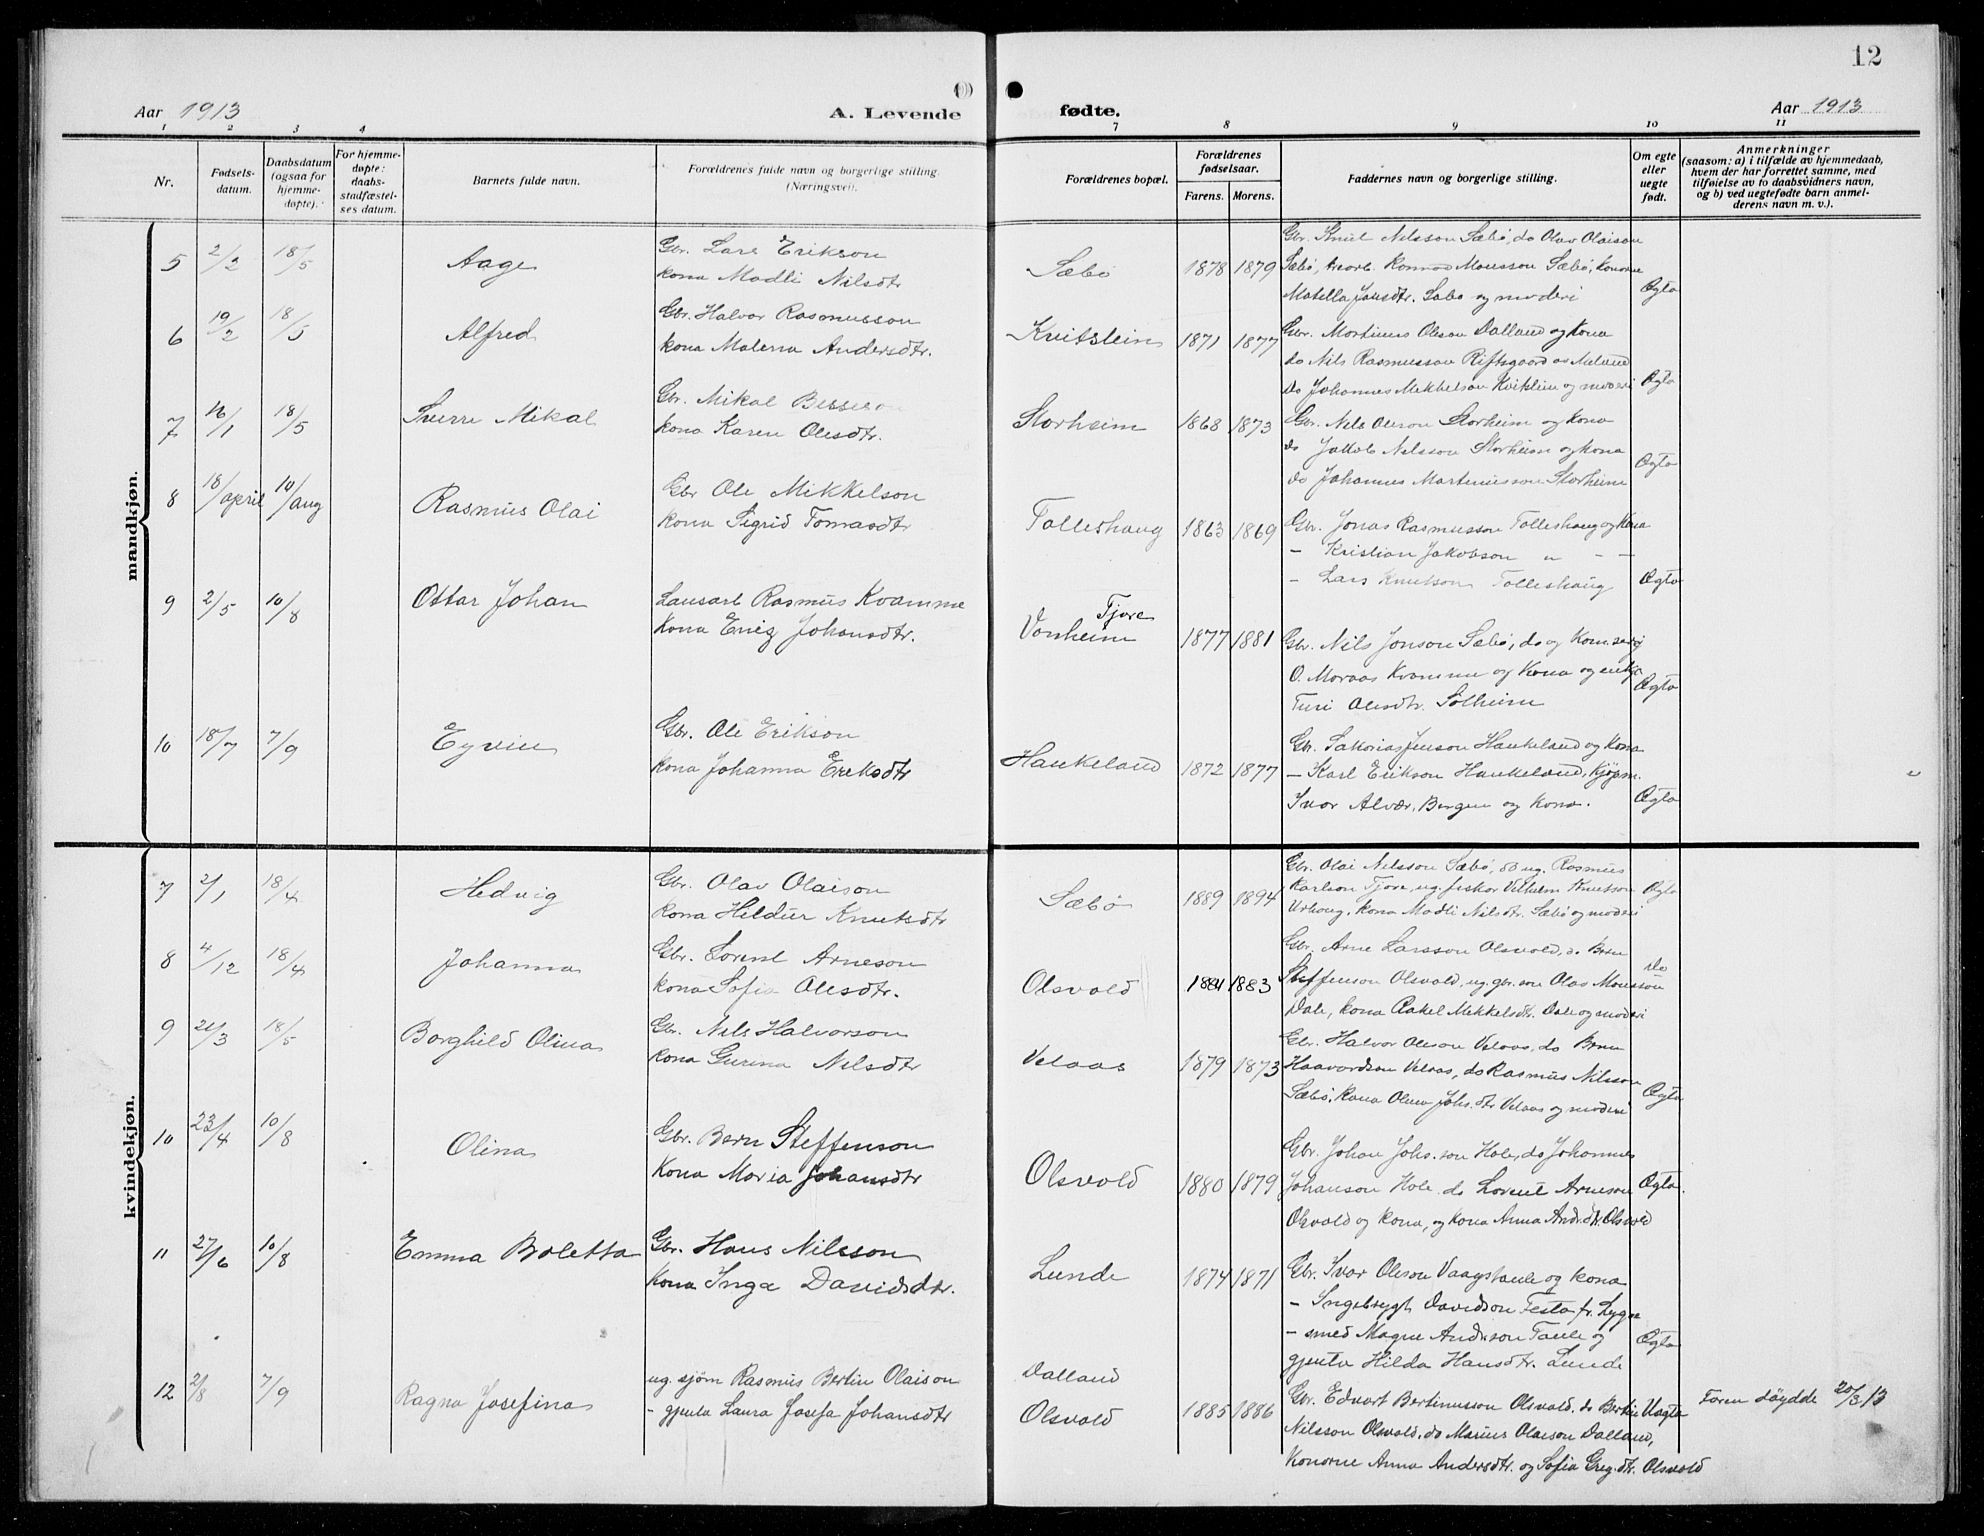 12
Aar 1913
A. Levende
fødte.
Aar 1913
1 2 3 4 7 8 9 10 11
Nr.
Fødsels-
datum.
Daabsdatum
(ogsaa for
hjemme-
døpte).
For hjemme-
døpte:
daabs-
stadfæstel-
ses datum.
Barnets fulde navn.
Forældrenes fulde navn og borgerlige stilling.
(Næringsvei).
Forældrenes bopæl.
Forældrenes
fødselsaar.
Farens. Morens.
Faddernes navn og borgerlige stilling.
Om egte
eller
uegte
født.
Anmerkninger
(saasom: a) i tilfælde av hjemmedaab,
hvem der har forrettet samme, med
tilføielse av to daabsvidners navn,
og b) ved uegtefødte barn anmel-
derens navn m. v.).
mandkjøn.
5 2/2 18/5 Aage
Gbr. Lars Erikson
kona Madli Nilsdtr
Sæbø 1878 1879
Gbr. Knut Nilsson Sæbø, do Olav Olaison
Sæbø, Monsson Sæbø, konorne
Matella Jonsdtr. Sæbø og moderi
Ægta
6 19/2 18/5 Alfred
Gbr. Halvor Rasmusson
kona Malena Andersdtr.
Kvitstein 1871 1877
Gbr. Martinus Oleson Dalland og kona
do Nils Rasmusson
do Johannes Mikkelson Kvitstein og moderi
Ægta
7 16/1 18/5 Sverre Mikal
Gbr. Mikal
kona Karen Olesdtr.
Storheim 1868 1873
Gbr. Nils Oleson Storheim og kona
do Jakob Nilsson Storheim og kona
do Johannes Martinusson Storheim
Ægta
8 18/april 10/aug Rasmus Olai
Gbr Ole Mikkelson
kona Sigrid Tomasdtr
Tolleshaug 1863 1869
Gbr. Jonas Rasmusson Tolleshaug og kona
- Kristian Jakobson " - -
- Lars Knutson Tolleshaug
Ægta
9 2/5 10/8 Ottar Johan
Lausarb Rasmus Kvamme
kona Johansdtr.
Tjore
Vonheim 1877 1881
Gbr. Nils Jonson Sæbø, do og
O. Moraas Kvamme og kona og enkja
Turi Olesdtr. Solheim
Ægta
10 18/7 7/9 Eyvin
Gbr. Ole Erikson
kona Johanna Eriksdtr
Haukeland 1872 1877
Gbr. Sakarias Jenson Haukeland og kona
- Karl Erikson Haukeland, kjøpm.
Ivar Alvær, Bergen og kona.
Ægta
kvindekjøn.
7 2/1 18/4 Hedvig
Gbr. Olav Olaison
kona Hildur Knutsdtr
Sæbø 1889 1894
Gbr. Olai Nilsson Sæbø, do ug. Rasmus
Karlson Tjore, ug. fiskar Vilhelm Knutsson
Urhaug, kona Madli Nilsdtr. Sæbø og moderi
Ægta
8 4/12 18/4 Johanna
Gbr. Lorent Arneson
kona Sofia Olesdtr.
Olsvold 1881 1883
Gbr. Arne Larsson Olsvold, do Bern
Steffenson Olsvold, ug. gbr. son Olav Monsson
Dale, kona Rakel Mikkelsdtr. Dale og moderi
Do
9 21/3 18/5 Borghild Olina
Gbr. Nils Halvorson
kona Gurina Nilsdtr
Velaas 1879 1873
Gbr. Halvor Oleson Velaas, do Bern
Haavardson Velaas, do Rasmus Nilsson
Sæbø, kona Olina Johs.dtr Velaas og moderi
Ægta
10 23/4 10/8 Olina
Gbr. Bern Steffenson
Kona Maria Johansdtr
Olsvold 1880 1879
Gbr. Johan Johs.son Hole, do Johannes
Johanson Hole. do Lorent Arneson
Olsvold og kona, og kona Anna And.dtr. Olsvold
Ægta.
11 27/6 10/8 Emma Boletta
Gbr. Hans Nilsson
kona Inga Davidsdtr.
Lunde 1874 1871
Gbr. Ivar Oleson Vaagstaule og kona
- Ingebrigt Davidson Festa fr. Lygre
- smed Magne Anderson Taule og
gjenta Hilda Hansdtr. Lunde
Ægta
12 2/8 7/9 Ragna Josefina
ug. sjøm Rasmus Bertin Olaison
- gjenta Laura Josefa Johansdtr
Dalland
Olsvold 1885 1886
Gbr. Edvart Bertinusson Olsvold. do Bertin
Nilsson Olsvold, do Marius Olaison Dalland,
Konorne Anna Andersdtr. og Sofia Greg.dtr. Olsvold
Uægta
Faren døydde 20/3 13